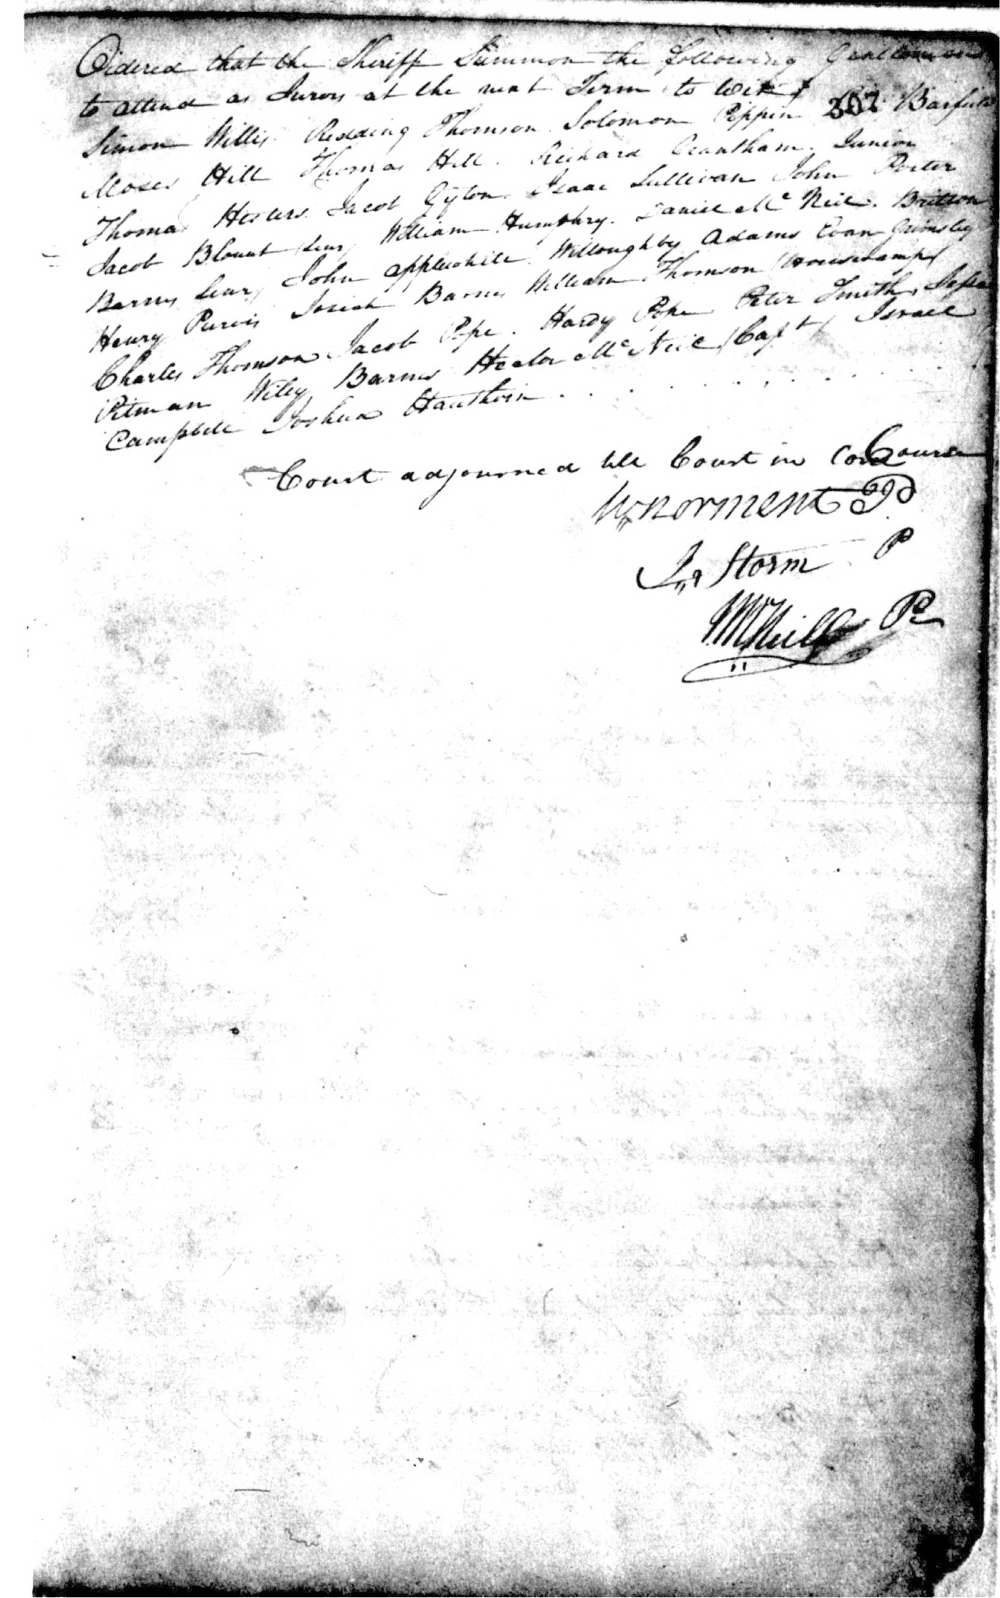 Ordered that the Sheriff Summon the following Gentlemen
to attend as Jurors at the next Term to wit
Simon Willis Redding Thomson Solomon Pippin 307 Barfield
Moses Hill Thomas Hill . Richard Grantham . Junior
Thomas Hesters Jacob Guyton Isaac Sullivan John Porter
Jacob Blount Senr William Humphry . Daniel Mc Neil . Britton
Barns Senr John applewhite Willoughby Adams Evan Grimsley
Henry Purvis Josiah Barns William Thomson
Charles Thomson Jacob Pope . Hardy Pope Peter Smith Jesse
Pitman Wiley Barns Hector Mc Neil (Capt) Israel
Campbell Joshua
Court adjourned till Court in Course
Wm norment JP
Jn Storm P
McNeill